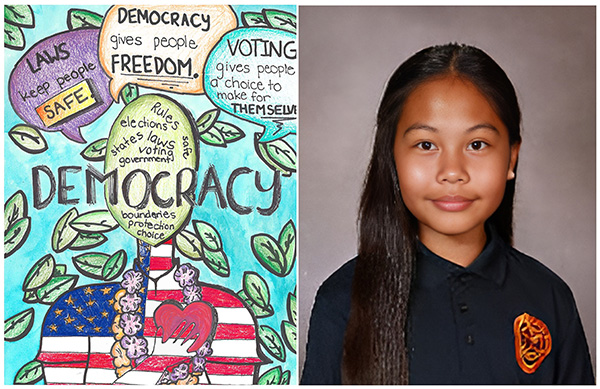 LAWS
keep people
SAFE.
DEMOCRACY
gives people
FREEDOM.
VOTING
gives people
a choice to
make for
THEMSELVE
Rules
elections
safe
states laws
voting
government
DEMOCRACY
bounderies
protection
choice